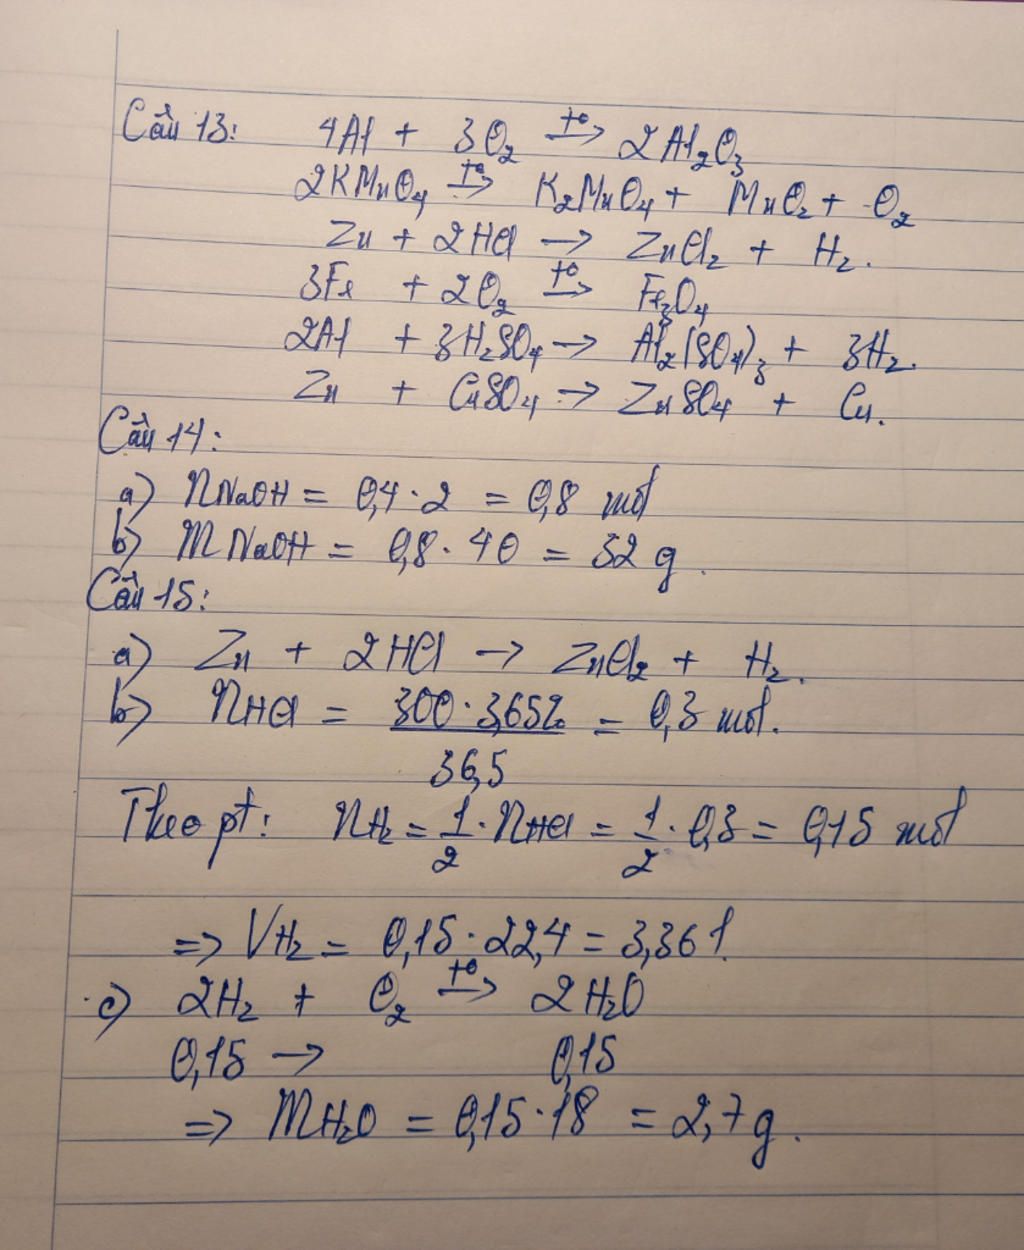 Câu 13: 4Al + 3O₂ →(t°) 2Al₂O₃
2KMnO₄ →(t°) K₂MnO₄ + MnO₂ + O₂
Zn + 2HCl → ZnCl₂ + H₂.
3Fe + 2O₂ →(t°) Fe₃O₄
2Al + 3H₂SO₄ → Al₂(SO₄)₃ + 3H₂.
Zn + CuSO₄ → ZnSO₄ + Cu.
Câu 14:
a) nNaOH = 0,4 · 2 = 0,8 mol
b) mNaOH = 0,8 · 40 = 32 g.
Câu 15:
a) Zn + 2HCl → ZnCl₂ + H₂.
b) nHCl = 300 · 3,65% / 36,5 = 0,3 mol.
Theo pt: nH₂ = 1/2 · nHCl = 1/2 · 0,3 = 0,15 mol
=> VH₂ = 0,15 · 22,4 = 3,36 l.
c) 2H₂ + O₂ →(t°) 2H₂O
0,15 → 0,15
=> mH₂O = 0,15 · 18 = 2,7 g.